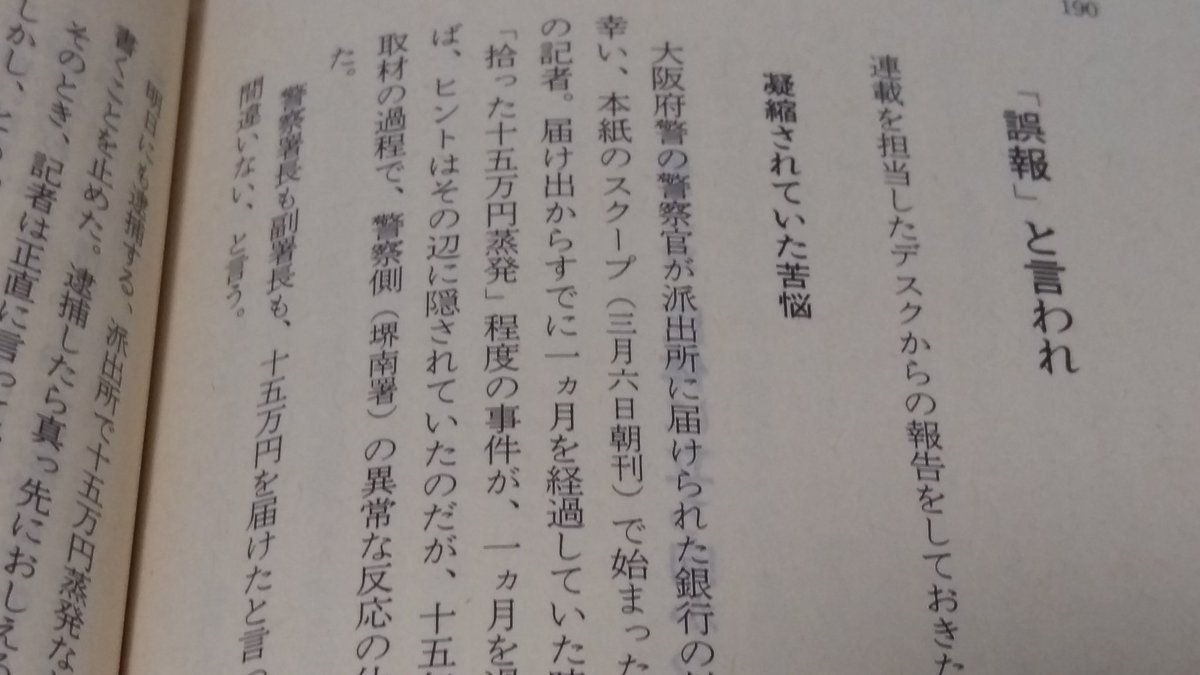 190
「誤報」と言われ
連載を担当したデスクからの報告をしておきた
凝縮されていた苦悩
大阪府警の警察官が派出所に届けられた銀行の
幸い、本紙のスクープ（三月六日朝刊）で始まった
の記者。届け出からすでに一ヵ月を経過していた
「拾った十五万円蒸発」程度の事件が、一ヵ月を
ば、ヒントはその辺に隠されていたのだが、十五
取材の過程で、警察側（堺南署）の異常な反応の
た。
警察署長も副署長も、十五万円を届けたと言
間違いない、と言う。
明日にも逮捕する、派出所で十五万円蒸発な
書くことを止めた。逮捕したら真っ先におしえる
そのとき、記者は正直に言って
しかし、